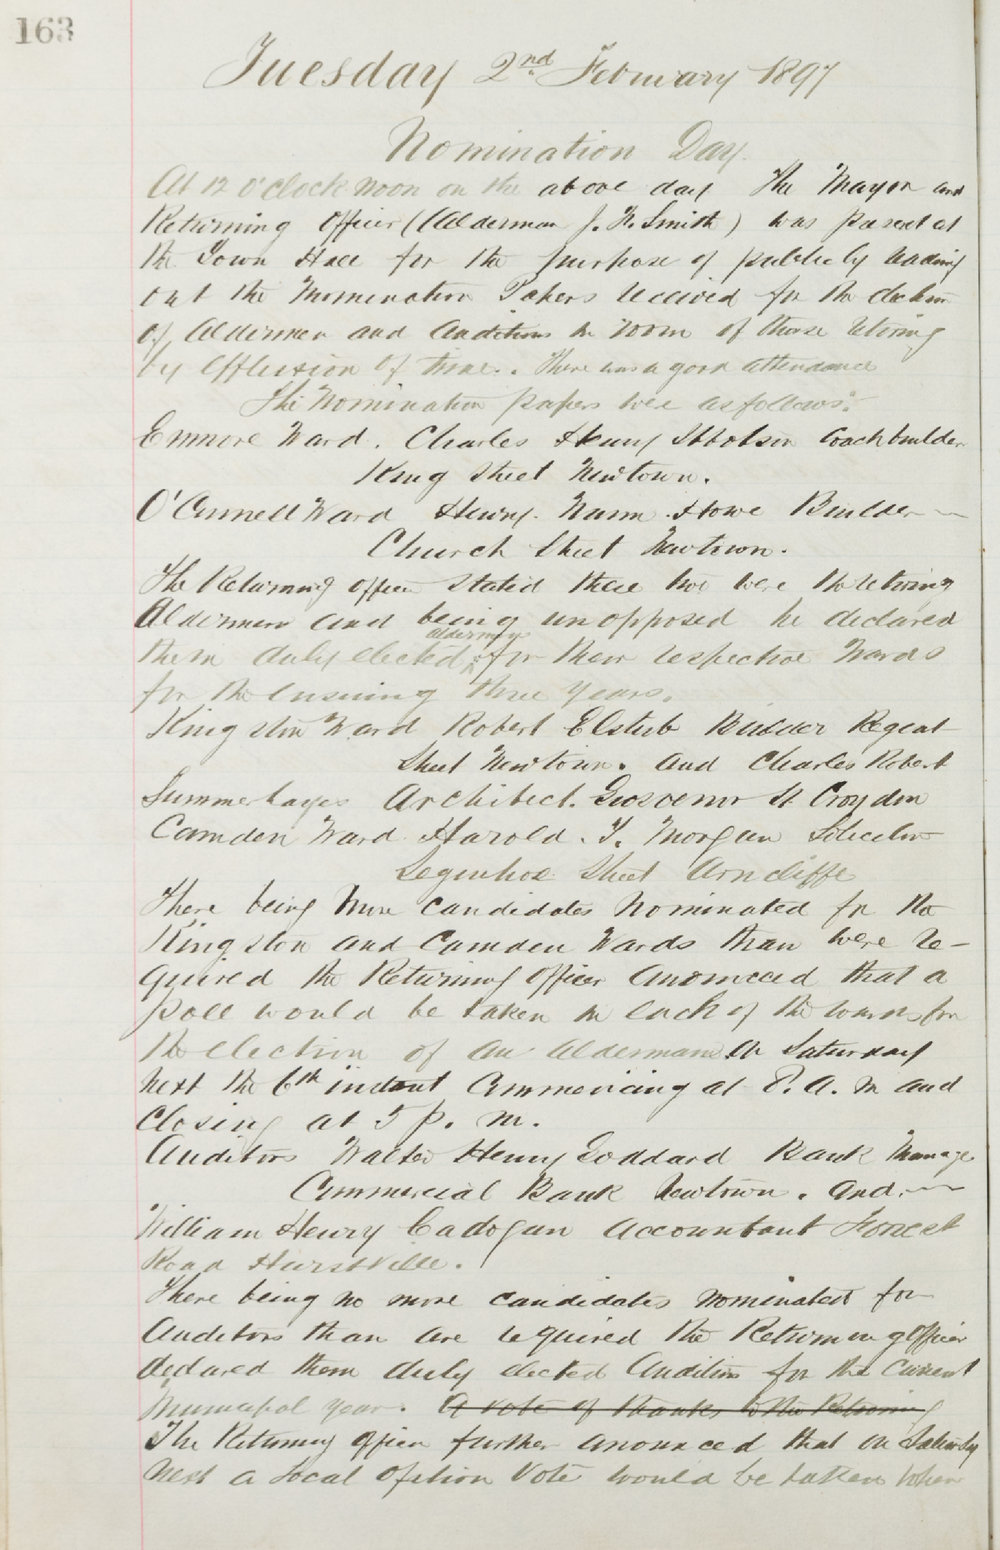 163
Tuesday 2nd February 1897
Nomination Day.
At 12 O'clock Noon on the above day The Mayor and
Returning Officer (Alderman J. F. Smith) was present at
the Town Hall for the purpose of publicly reading
out the Nomination Papers received for the election
of Aldermen and Auditors in room of those retiring
by Effluxion of time. There was a good attendance
The Nomination papers were as follows:
Enmore Ward. Charles Henry Ibbotson Coachbuilder
King Street Newtown.
O'Connell Ward Henry Howe Builder
Church Street Newtown.
The Returning Officer stated these two were the retiring
Aldermen and being unopposed he declared
aldermen
them duly elected for their respective Wards
for the ensuing three years.
Kingston Ward Robert Elstub Builder Regent
Street Newtown. And Charles Robert
Summerhayes Architect. Grosvenor St Croydon
Camden Ward Harold. T. Morgan Solicitor
Street Arncliffe
There being more candidates Nominated for the
Kingston and Camden Wards than were re-
quired the Returning Officer anounced that a
poll would be taken in each of the wards for
the election of an alderman on Saturday
next the 6th instant Commencing at 8. a. m and
closing at 5 p. m.
Auditors Walter Henry Goddard Bank Manage
Commercial Bank Newtown. And.
William Henry Cadogan Accountant Forest
Road Hurstville.
There being no more candidates nominated for
Auditors than are required the Returning Officer
declared them duly elected Auditors for the Current
Municipal year. A vote of thanks to the Returning
The Returning Officer further anounced that on Saturday
next a Local Option Vote would be taken when